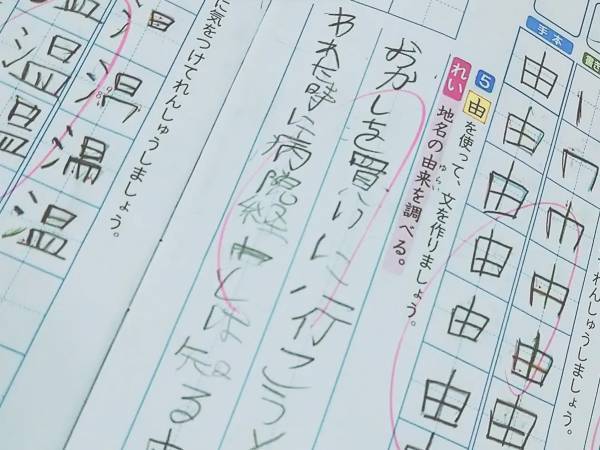 れんしゅうしましょう。
由
由
手本
由
由
由
由
由
由
5 由を使って、文を作りましょう。
れい 地名の由来を調べる。
おかしを買いに行こうと
われた時に病院経由とは知る由
に気をつけてれんしゅうしましょう。
温
温
温
温